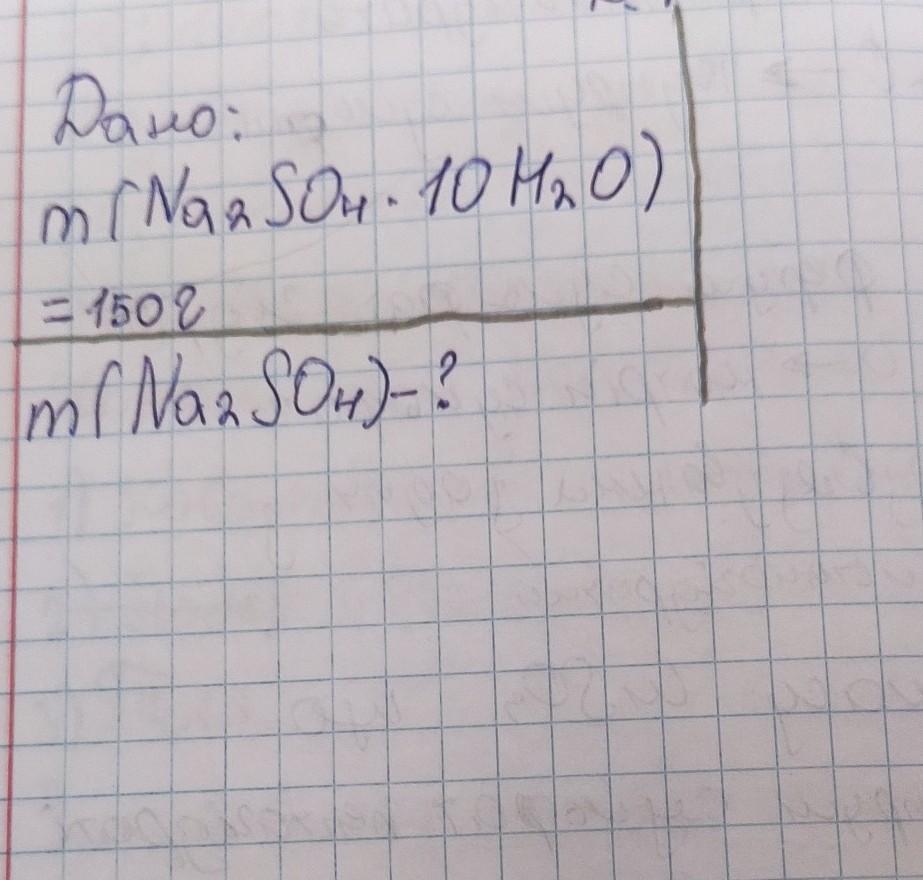 Дано:
m(Na₂SO₄·10H₂O)
=150г
m(Na₂SO₄)-?